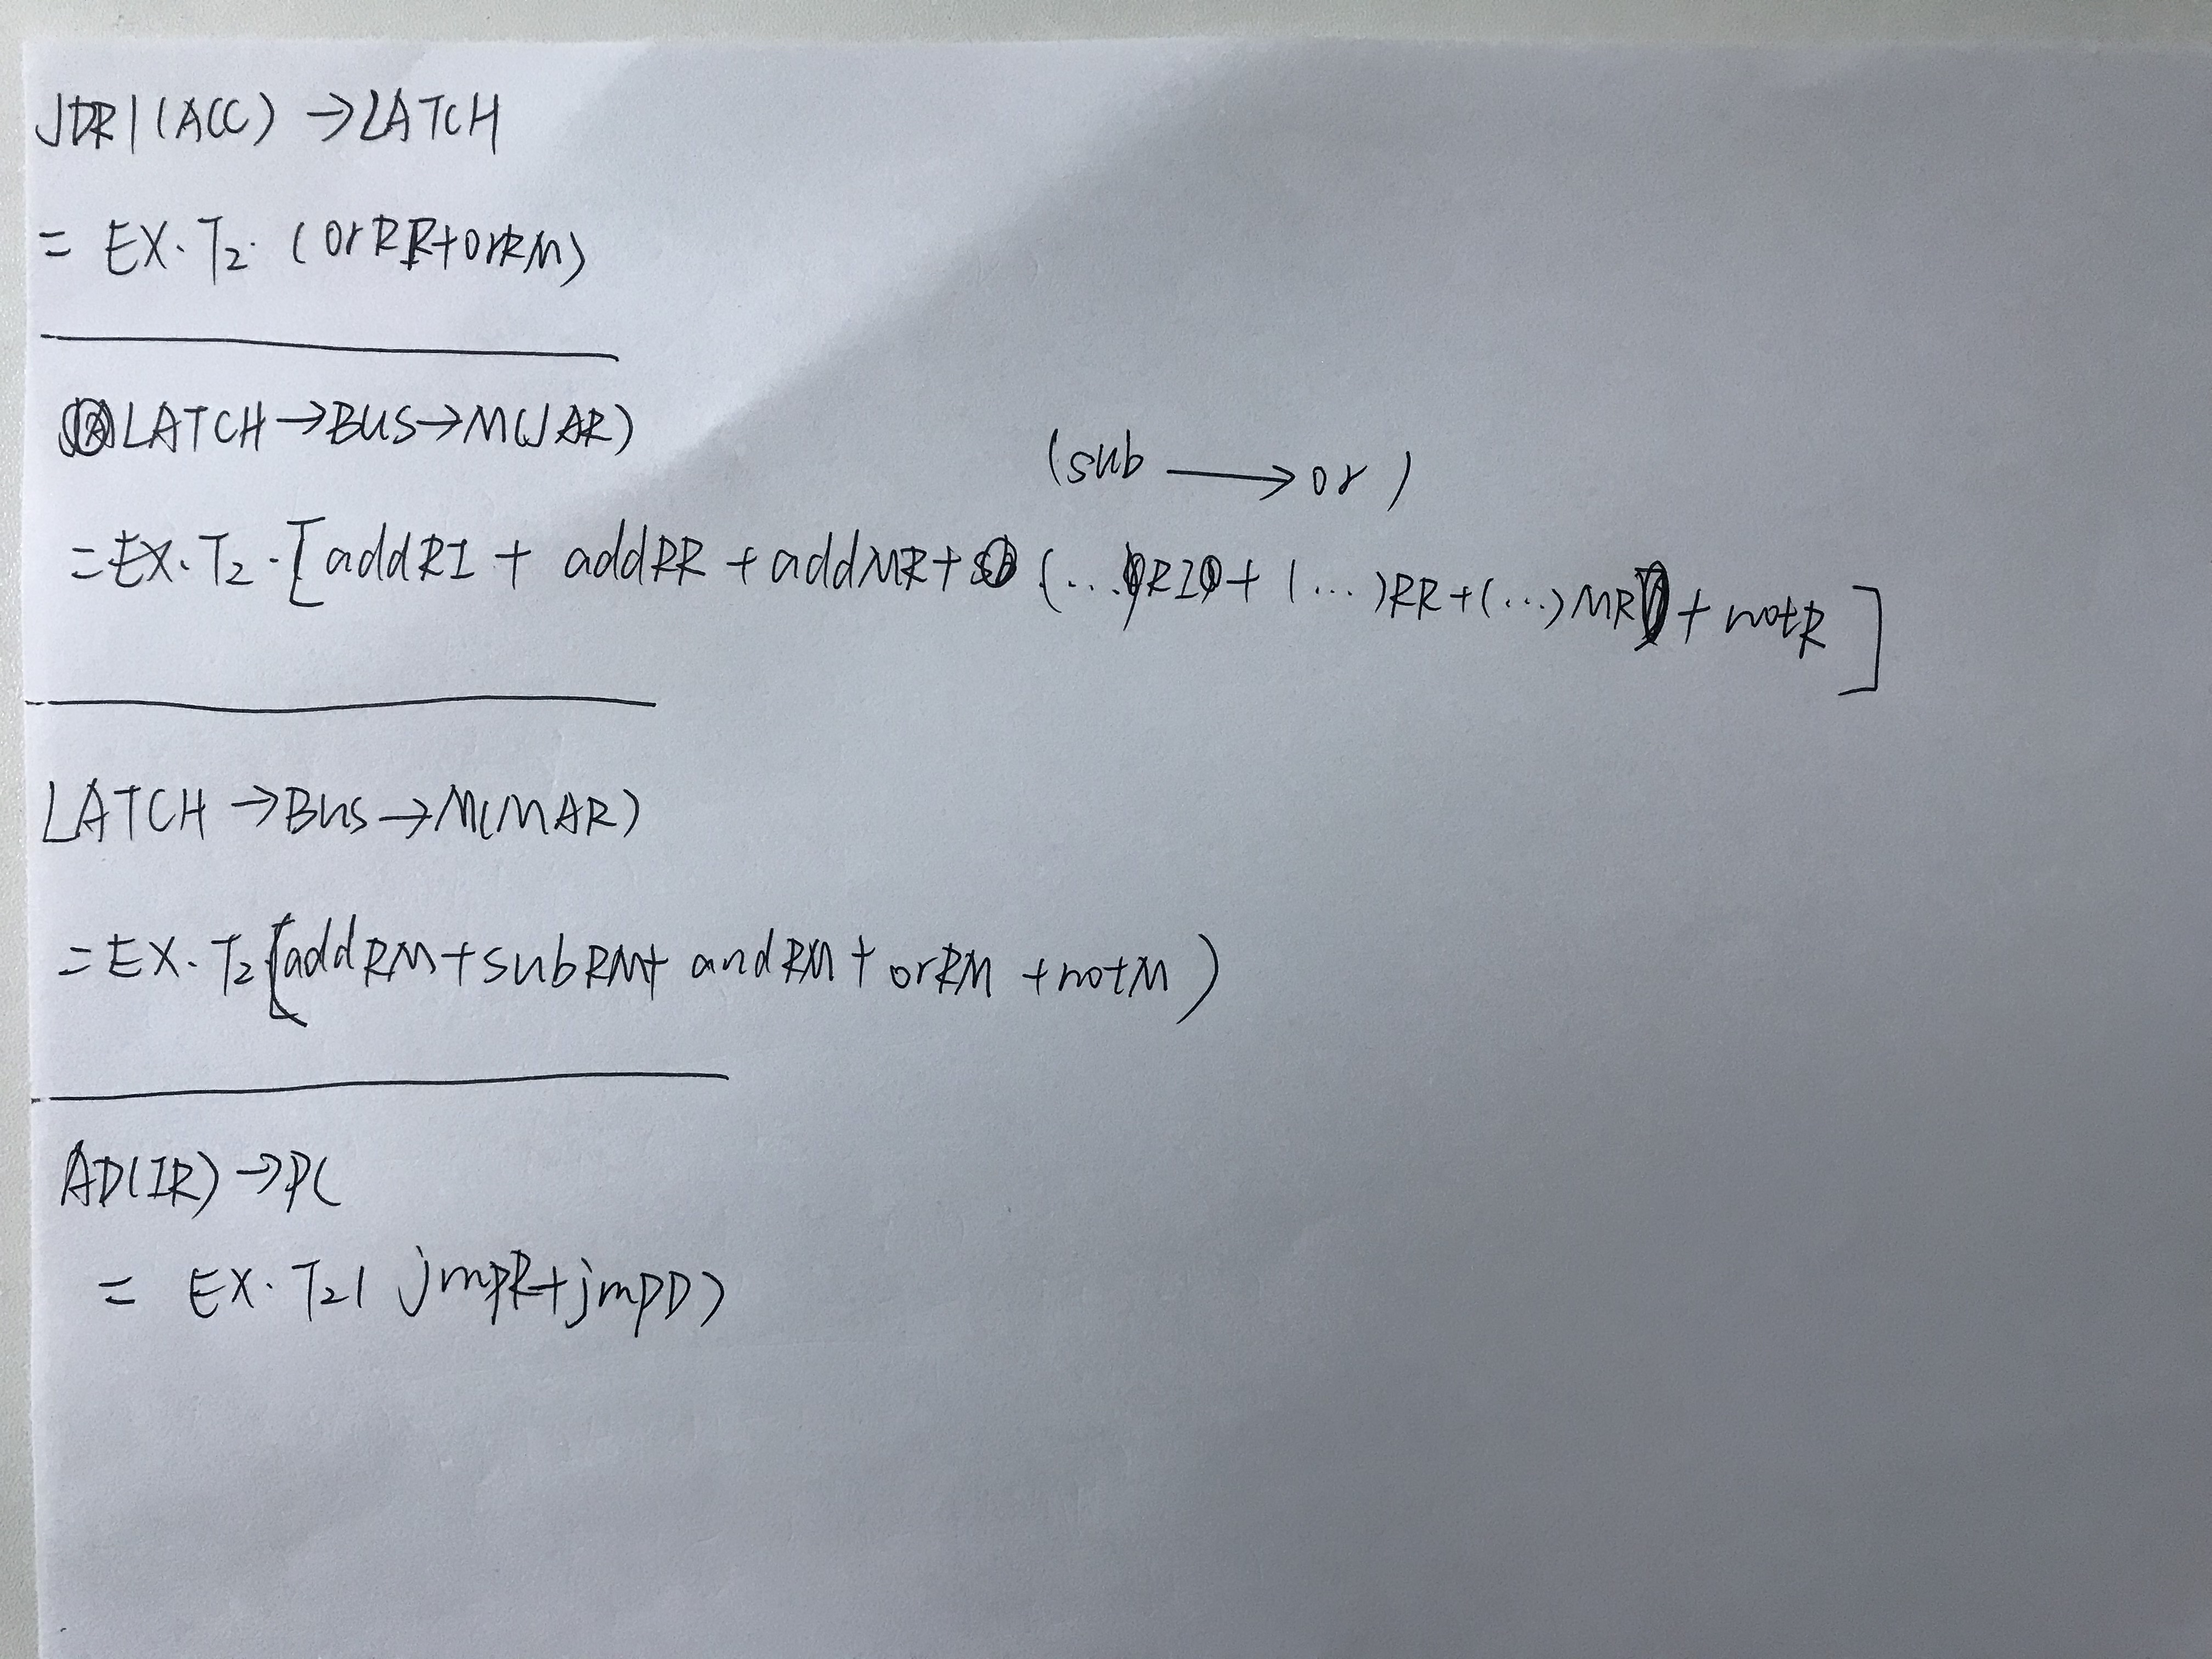 JDR|(ACC) →LATCH
= EX·T₂·(orRR+orRM)
LATCH→BUS→M(JAR)
(sub → or)
=EX·T₂·[addRI + addRR + addMR + (...)RI + (...)RR+(...)MR + notR]
LATCH →Bus→M(MAR)
=EX·T₂[addRM+subRM+ andRM+ orRM +notM)
AD(IR)→PC
= EX·T₂( jmpR+jmpD)